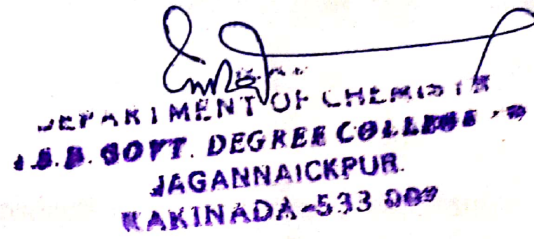 DEPARTMENT OF CHEMISTR
GOVT. DEGREE COLLEGE
JAGANNAICKPUR.
KAKINADA-533 002